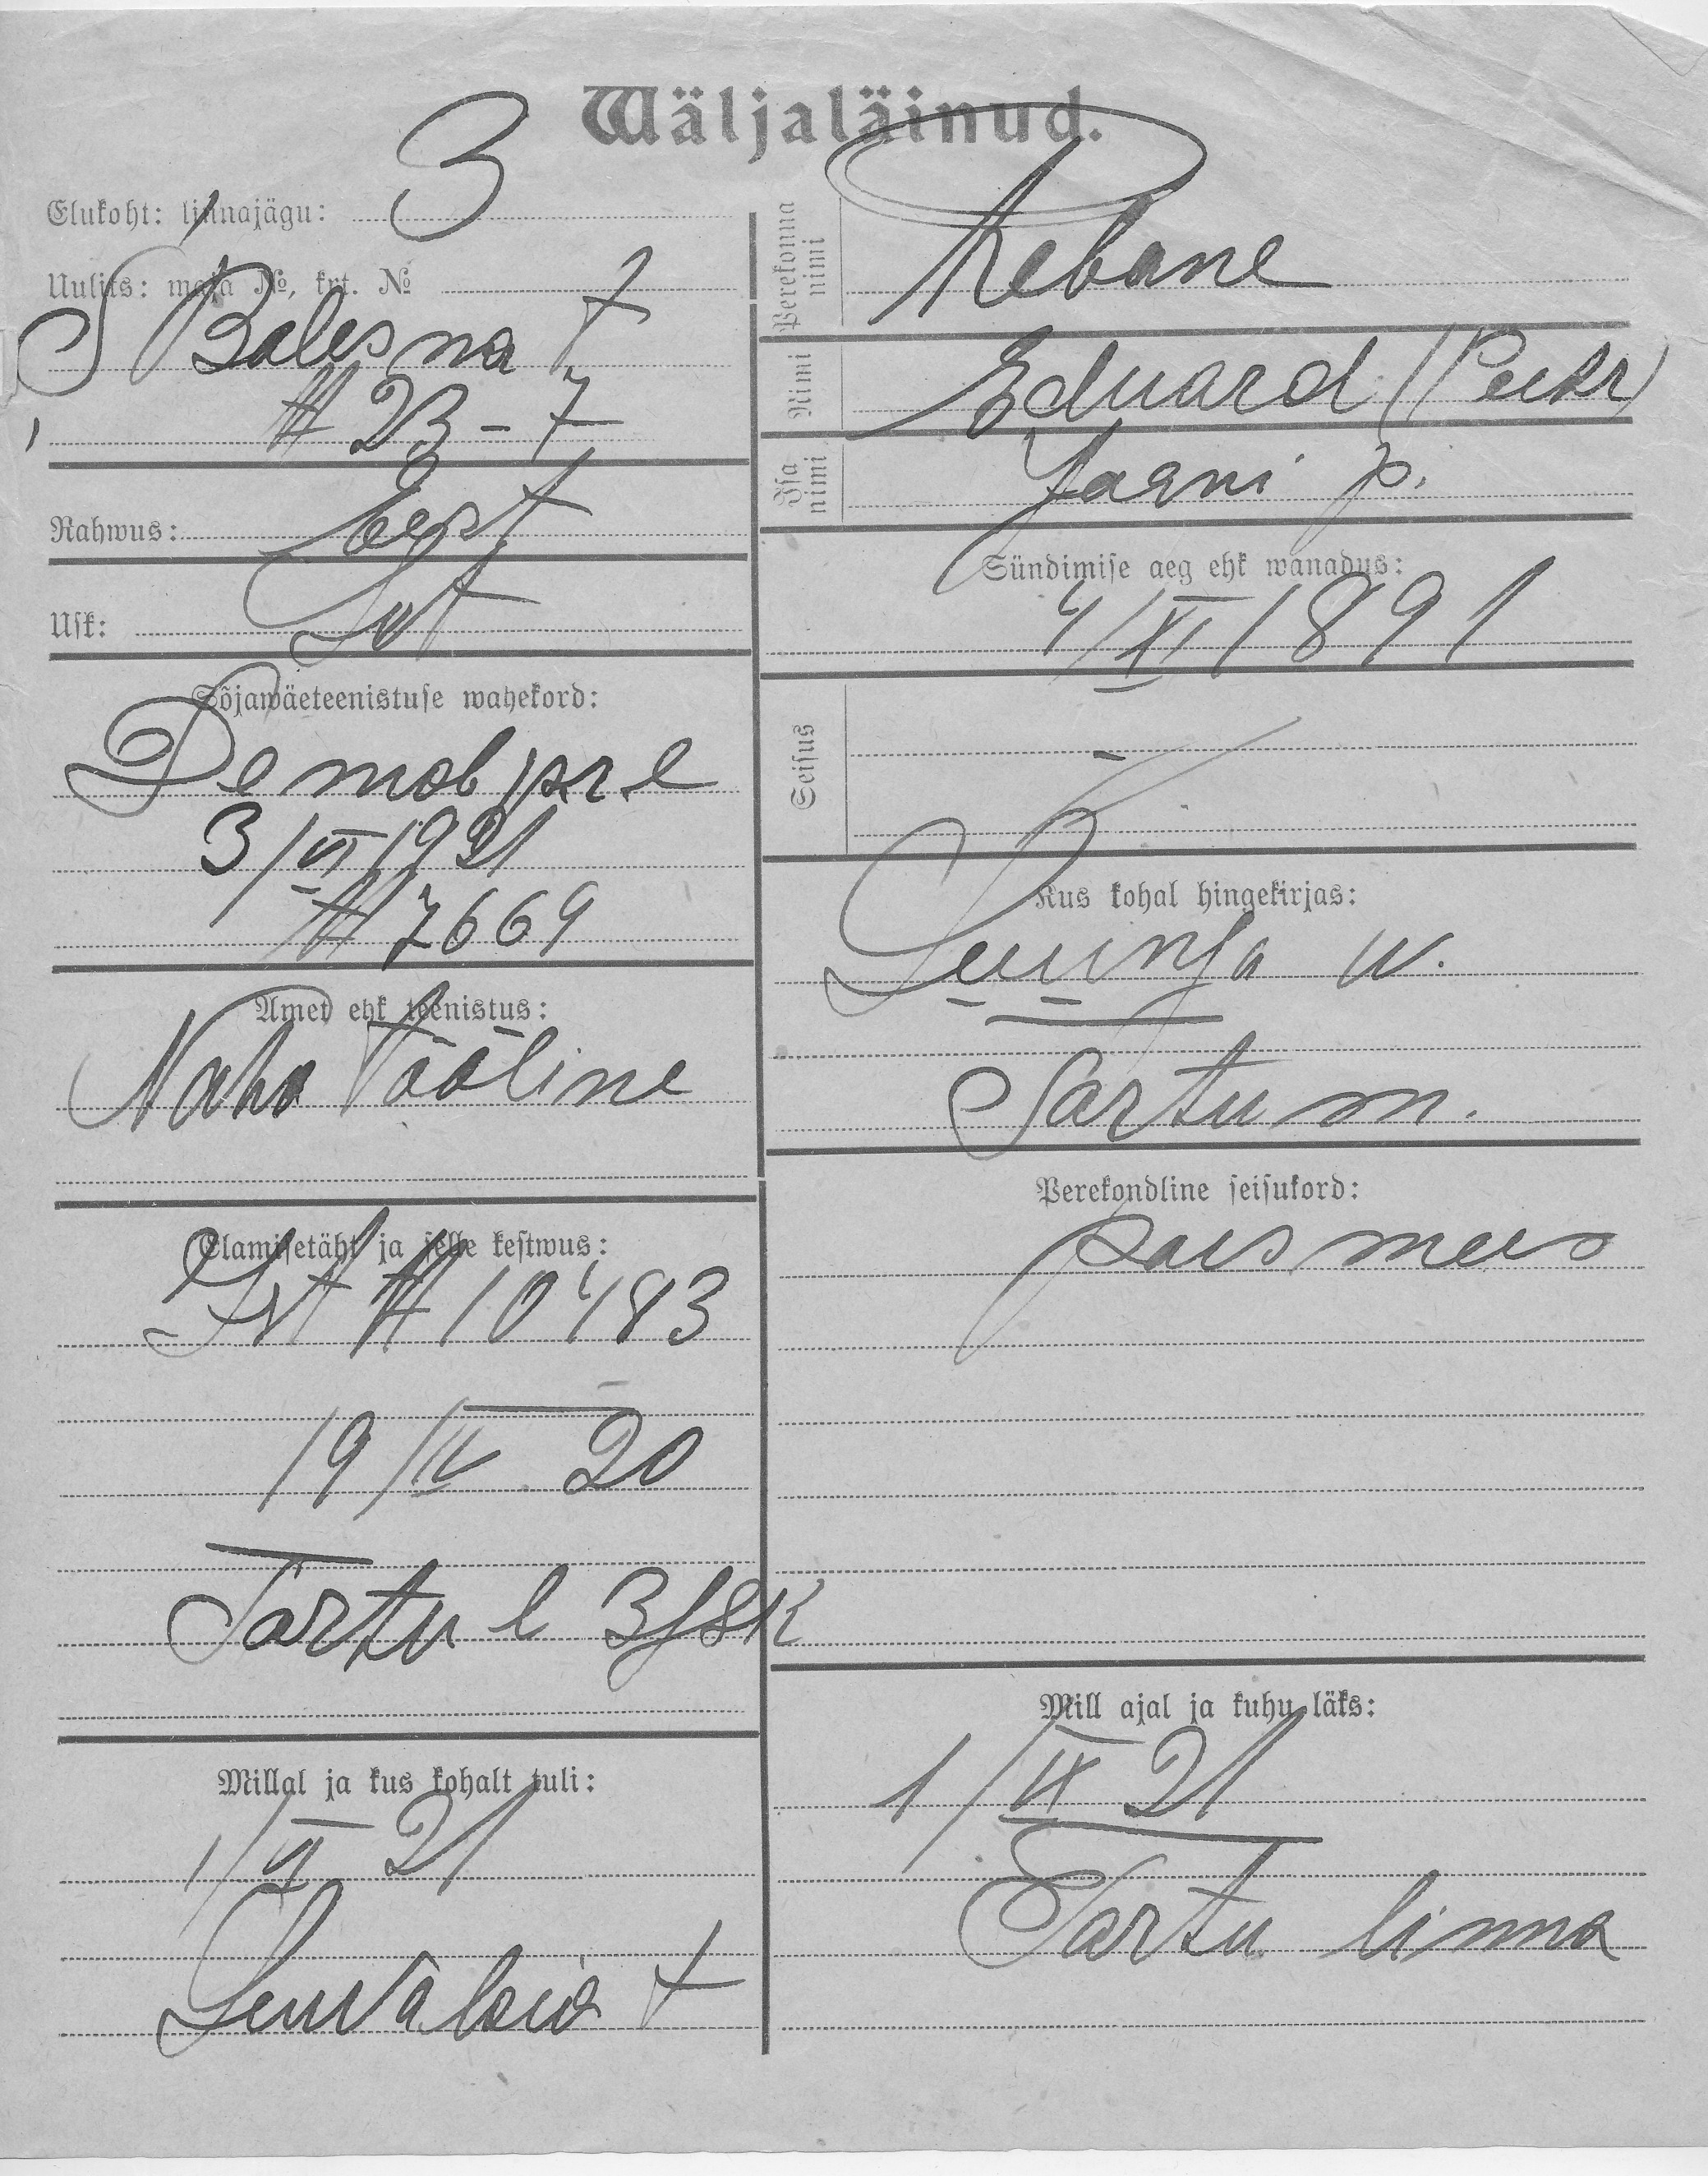 Wäljaläinud.
Elukoht: linnajägu: 3
Uulits: maja №, krt. № t
№ 23-7
Rahwus: Eest
Usk: Lut
Sõjawäeteenistuse wahekord:
Demob pr. l
3/VI 1921
№ 7669
Amet ehk teenistus:
Naha Tööline
Elamisetäht ja selle kestwus:
№ 10483
19/IV 20
Tartu l 3 jsk
Millal ja kus kohalt tuli:
21
t
Perekonna nimi Rebane
Nimi Eduard (Peeter)
Isa nimi Jaani p.
Sündimise aeg ehk wanadus:
4/XI 1891
Seisus -
Kus kohal hingekirjas:
Luunja w.
Tartu m.
Perekondline seisukord:
poismees
Mill ajal ja kuhu läks:
1/IX 21
Tartu linna